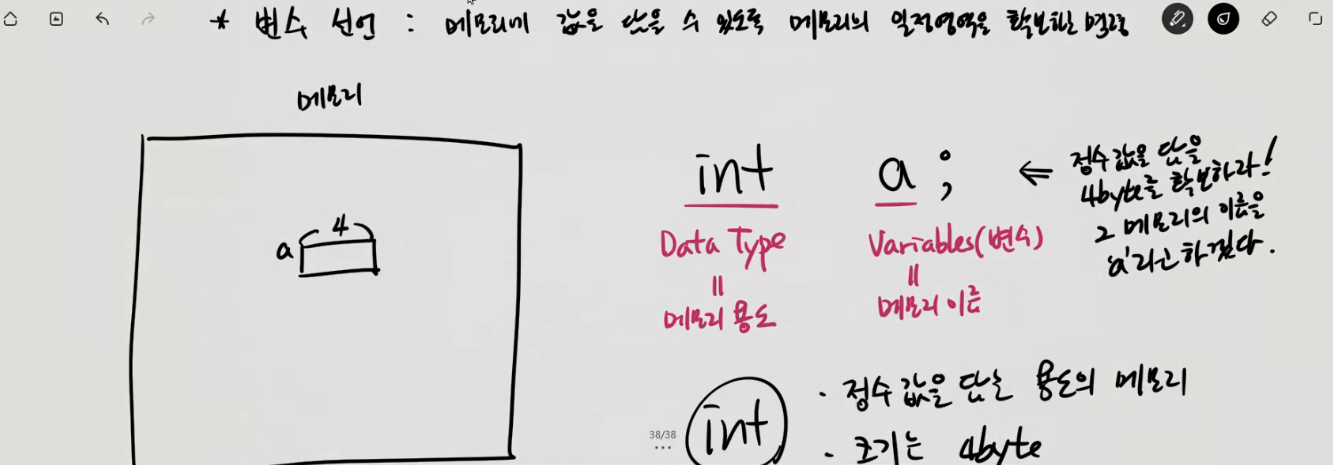 * 변수 선언 : 메모리에 값을 담을 수 있도록 메모리의 일정영역을 확보하는 명령
메모리
4
a
int a ;
Data Type
Variables(변수)
=
=
메모리 용도
메모리 이름
⇐ 정수 값을 담을
4byte를 확보하라!
그 메모리의 이름을
'a'라고 하겠다.
int
· 정수 값을 담는 용도의 메모리
· 크기는 4byte
38/38